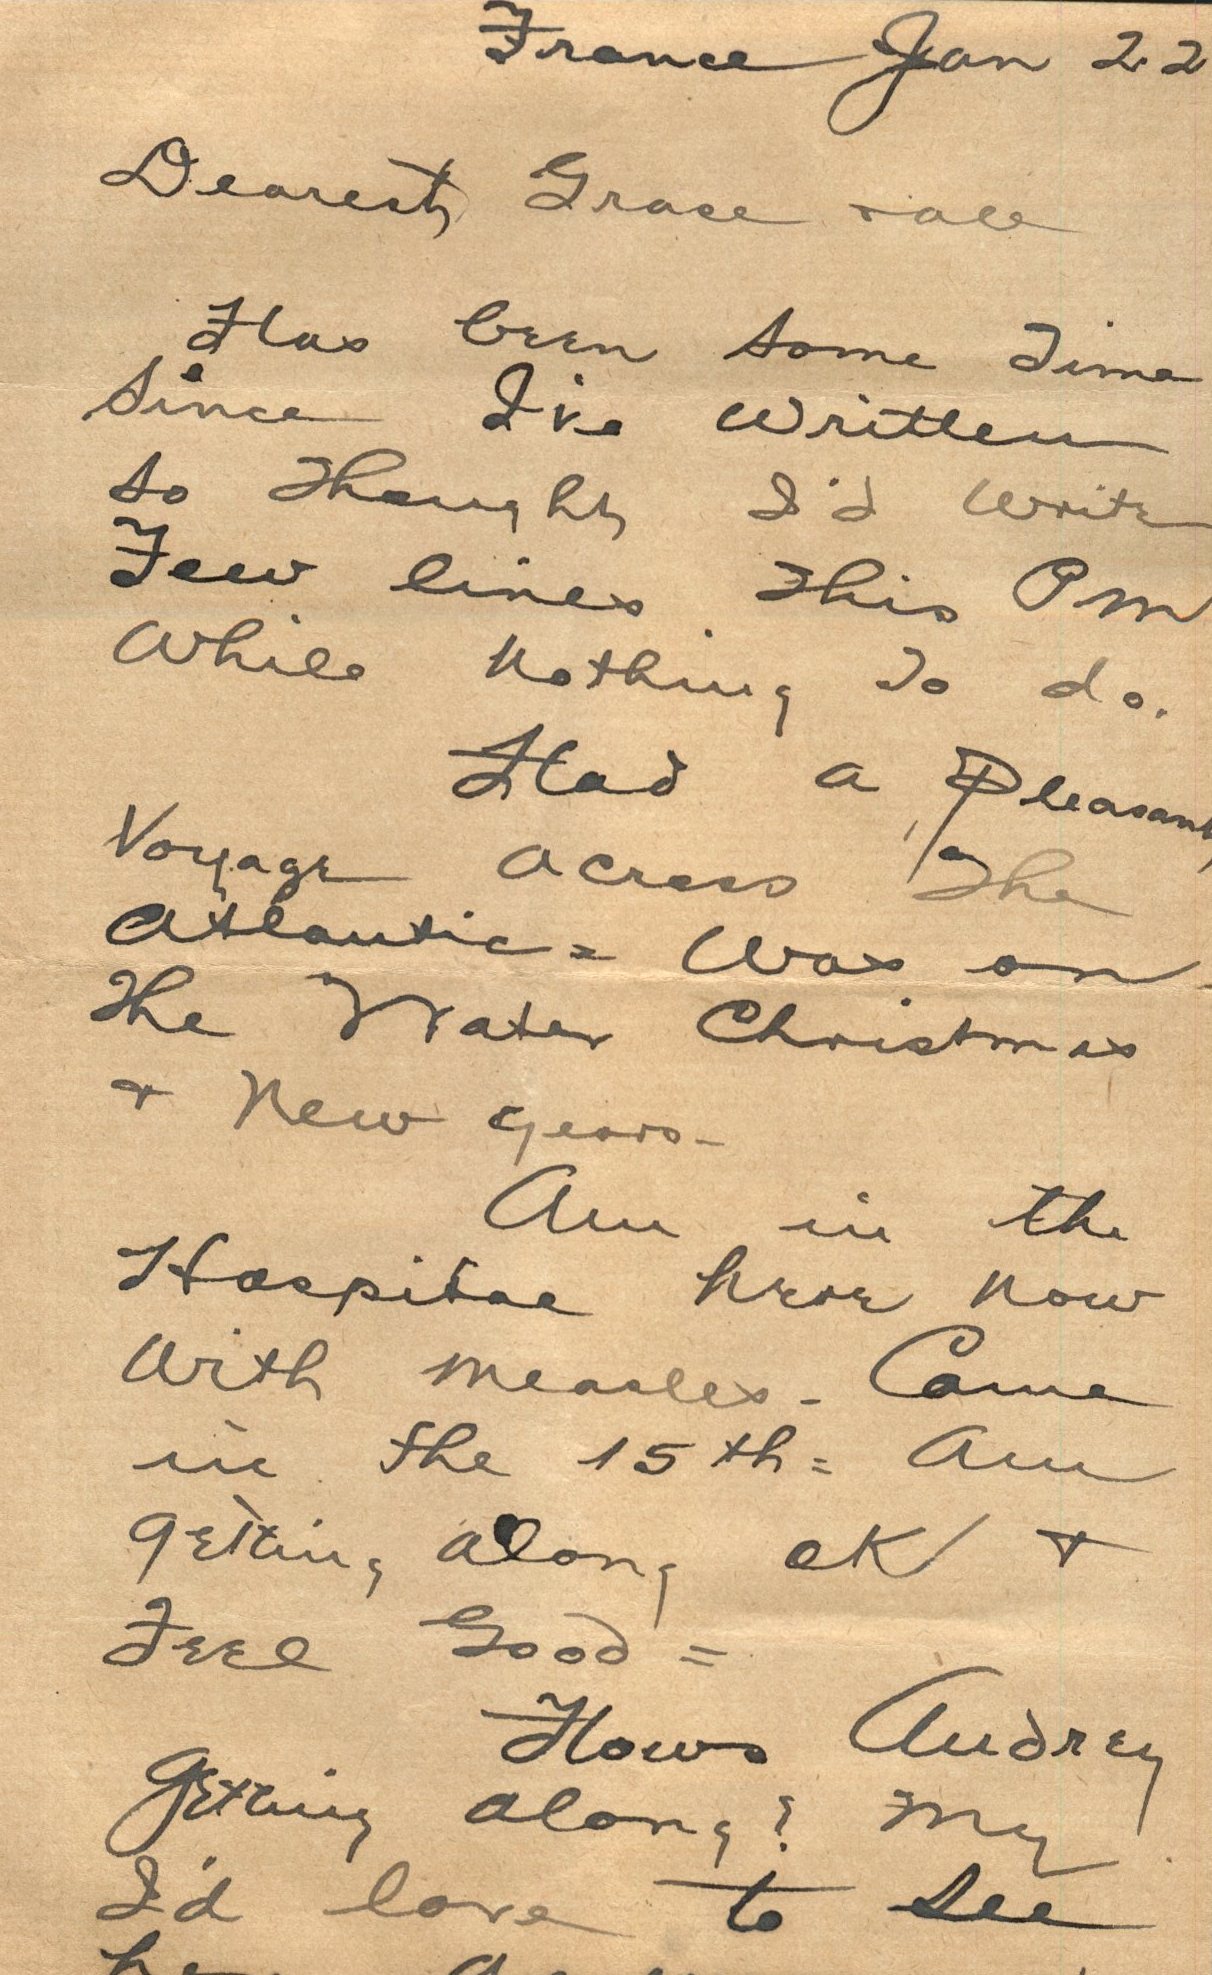 France Jan 22
Dearest Grace + all
Has been some time
since I've written
so thought I'd write
Few lines this PM
While nothing to do.
Had a Pleasant
Voyage across The
Atlantic = Was on
The Water Christmas
+ New years -
Am in the
Hospital here now
With measles - Came
in the 15th = Am
getting along OK +
Feel Good =
Hows Audrey
getting along? My
I'd love to see